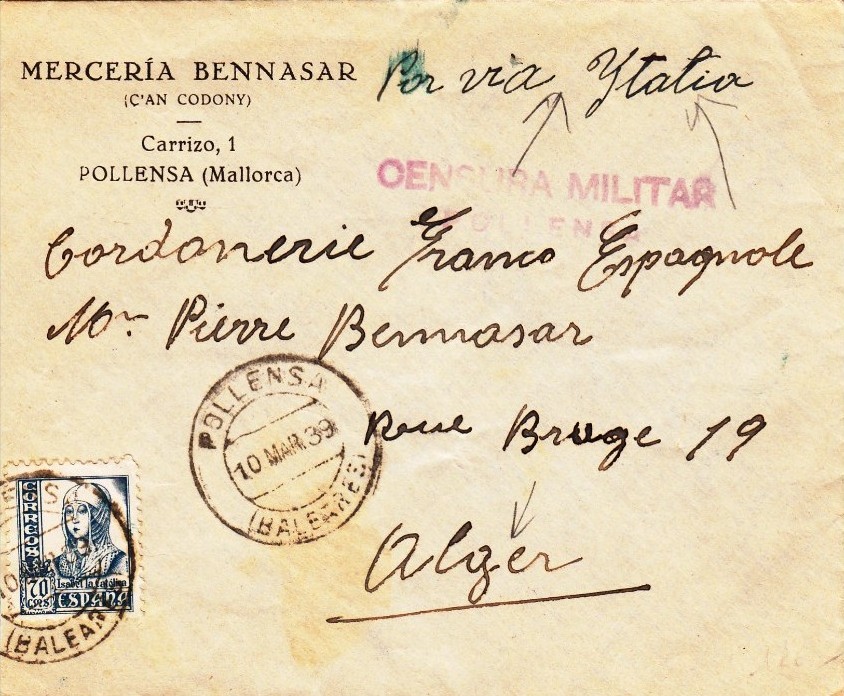 MERCERÍA BENNASAR
(C'AN CODONY)
Carrizo, 1
POLLENSA (Mallorca)
Por via Ytalia
CENSURA MILITAR
POLLENSA
Cordonerie Franco Espagnole
Mr Pierre Bennasar
Roue Bruge 19
Alger
POLLENSA
10 MAR. 39
(BALEARES)
CORREOS
70
CTS
Isabel la Católica
ESPAÑA
(BALEAR